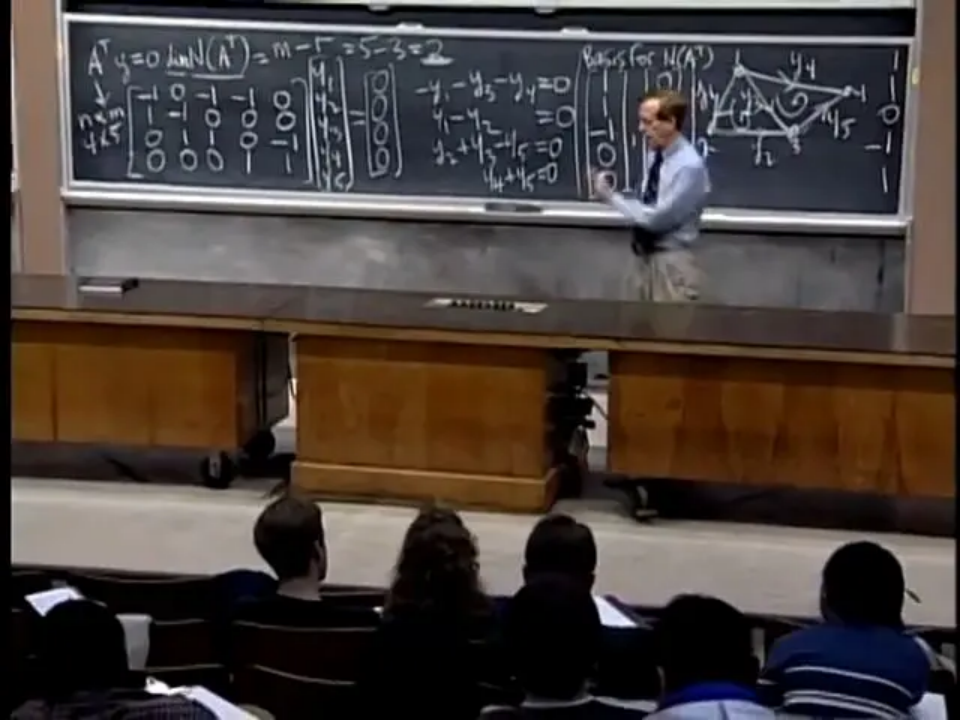 Aᵀy=0 dim N(Aᵀ) = m - r = 5-3=2
n×m
4×5
-1 0 -1 -1 0
1 -1 0 0 0
0 1 1 0 -1
0 0 0 1 1
y₁
y₂
y₃
y₄
y₅
=
0
0
0
0
-y₁-y₃-y₄=0
y₁-y₂ =0
y₂+y₃-y₅=0
y₄+y₅=0
Basis for N(Aᵀ)
1
1
-1
0
0
0
1
y₄
4
y₅
3
y₂
1
1
0
-1
1